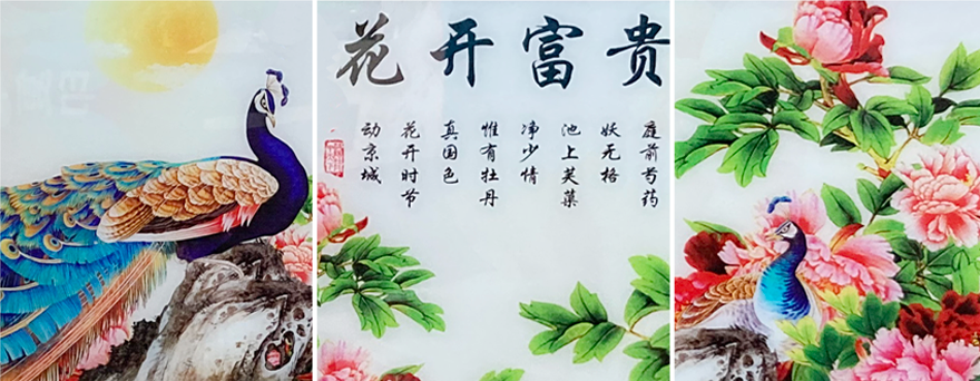 花开富贵
庭前芍药
妖无格
池上芙蕖
净少情
惟有牡丹
真国色
花开时节
动京城